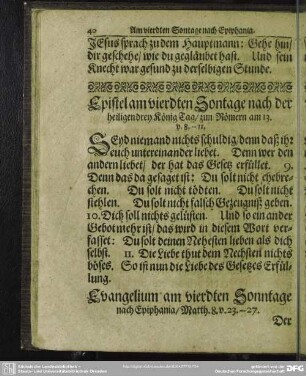 40 Am vierdten Sontage nach Epiphania.
JEsus sprach zu dem Hauptmann: Gehe hin/
dir geschehe/ wie du geglaubet hast. Und sein
Knecht war gesund zu derselbigen Stunde.
Epistel am vierdten Sontage nach der
heiligen drey König Tag/ zun Römern am 13.
v. 8.–11.
SEyd niemand nichts schuldig/ denn daß ihr
euch untereinander liebet. Denn wer den
andern liebet/ der hat das Gesetz erfüllet. 9.
Denn das da gesaget ist: Du solt nicht ehebre-
chen. Du solt nicht tödten. Du solt nicht
stehlen. Du solt nicht falsch Gezeugniß geben.
10. Dich soll nichts gelüsten. Und so ein ander
Gebot mehr ist/ das wird in diesem Wort ver-
fasset: Du solt deinen Nehesten lieben als dich
selbst. 11. Die Liebe thut dem Nechsten nichts
böses. So ist nun die Liebe des Gesetzes Erfül-
lung.
Evangelium am vierdten Sonntage
nach Epiphania/ Matth. 8. v. 23.–27.
Der